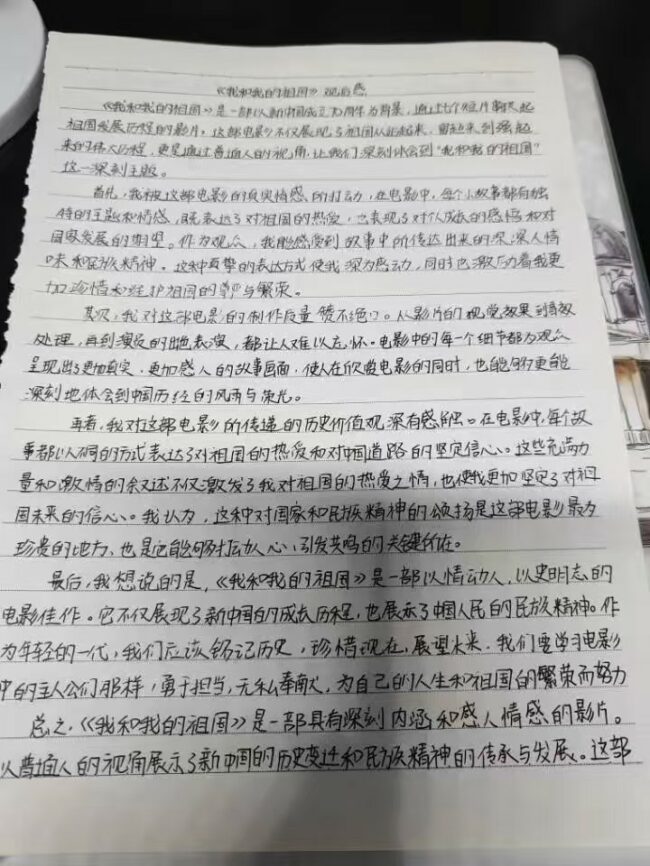 《我和我的祖国》观后感
《我和我的祖国》是一部以新中国成立70周年为背景，通过七个短片串联起
祖国发展历程的影片。这部电影不仅展现了祖国从站起来、富起来到强起
来的伟大历程，更是通过普通人的视角，让我们深刻体会到"我和我的祖国"
这一深刻主题。
首先，我被这部电影的真实情感所打动，在电影中，每个小故事都有独
特的主题和情感，既表达了对祖国的热爱，也表现了对个人成长的感悟和对
国家发展的期望。作为观众，我能感受到故事中所传达出来的深深人情
味和民族精神。这种真挚的表达方式使我深为感动，同时也激励着我更
加珍惜和维护祖国的尊严与繁荣。
其次，我对这部电影的制作质量赞不绝口。从影片的视觉效果到音效
处理，再到演员的出色表演，都让人难以忘怀。电影中的每一个细节都为观众
呈现出了更加真实、更加感人的故事画面，使人在欣赏电影的同时，也能够更能
深刻地体会到中国历经的风雨与荣光。
再者，我对这部电影所传递的历史价值观深有感触。在电影中，每个故
事都以不同的方式表达了对祖国的热爱和对中国道路的坚定信心。这些充满力
量和激情的叙述不仅激发了我对祖国的热爱之情，也使我更加坚定了对祖
国未来的信心。我认为，这种对国家和民族精神的颂扬是这部电影最为
珍贵的地方，也是它能够打动人心，引发共鸣的关键所在。
最后，我想说的是，《我和我的祖国》是一部以情动人，以史明志的
电影佳作。它不仅展现了新中国的成长历程，也展示了中国人民的民族精神。作
为年轻的一代，我们应该铭记历史，珍惜现在，展望未来。我们要学习电影
中的主人公们那样，勇于担当，无私奉献，为自己的人生和祖国的繁荣而努力
总之，《我和我的祖国》是一部具有深刻内涵和感人情感的影片。
以普通人的视角展示了新中国的历史变迁和民族精神的传承与发展。这部